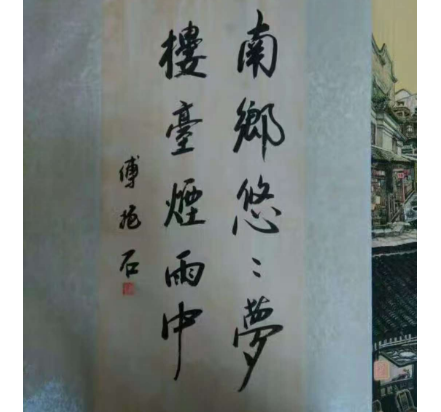 南鄉悠〻夢
樓臺煙雨中
傅抱石